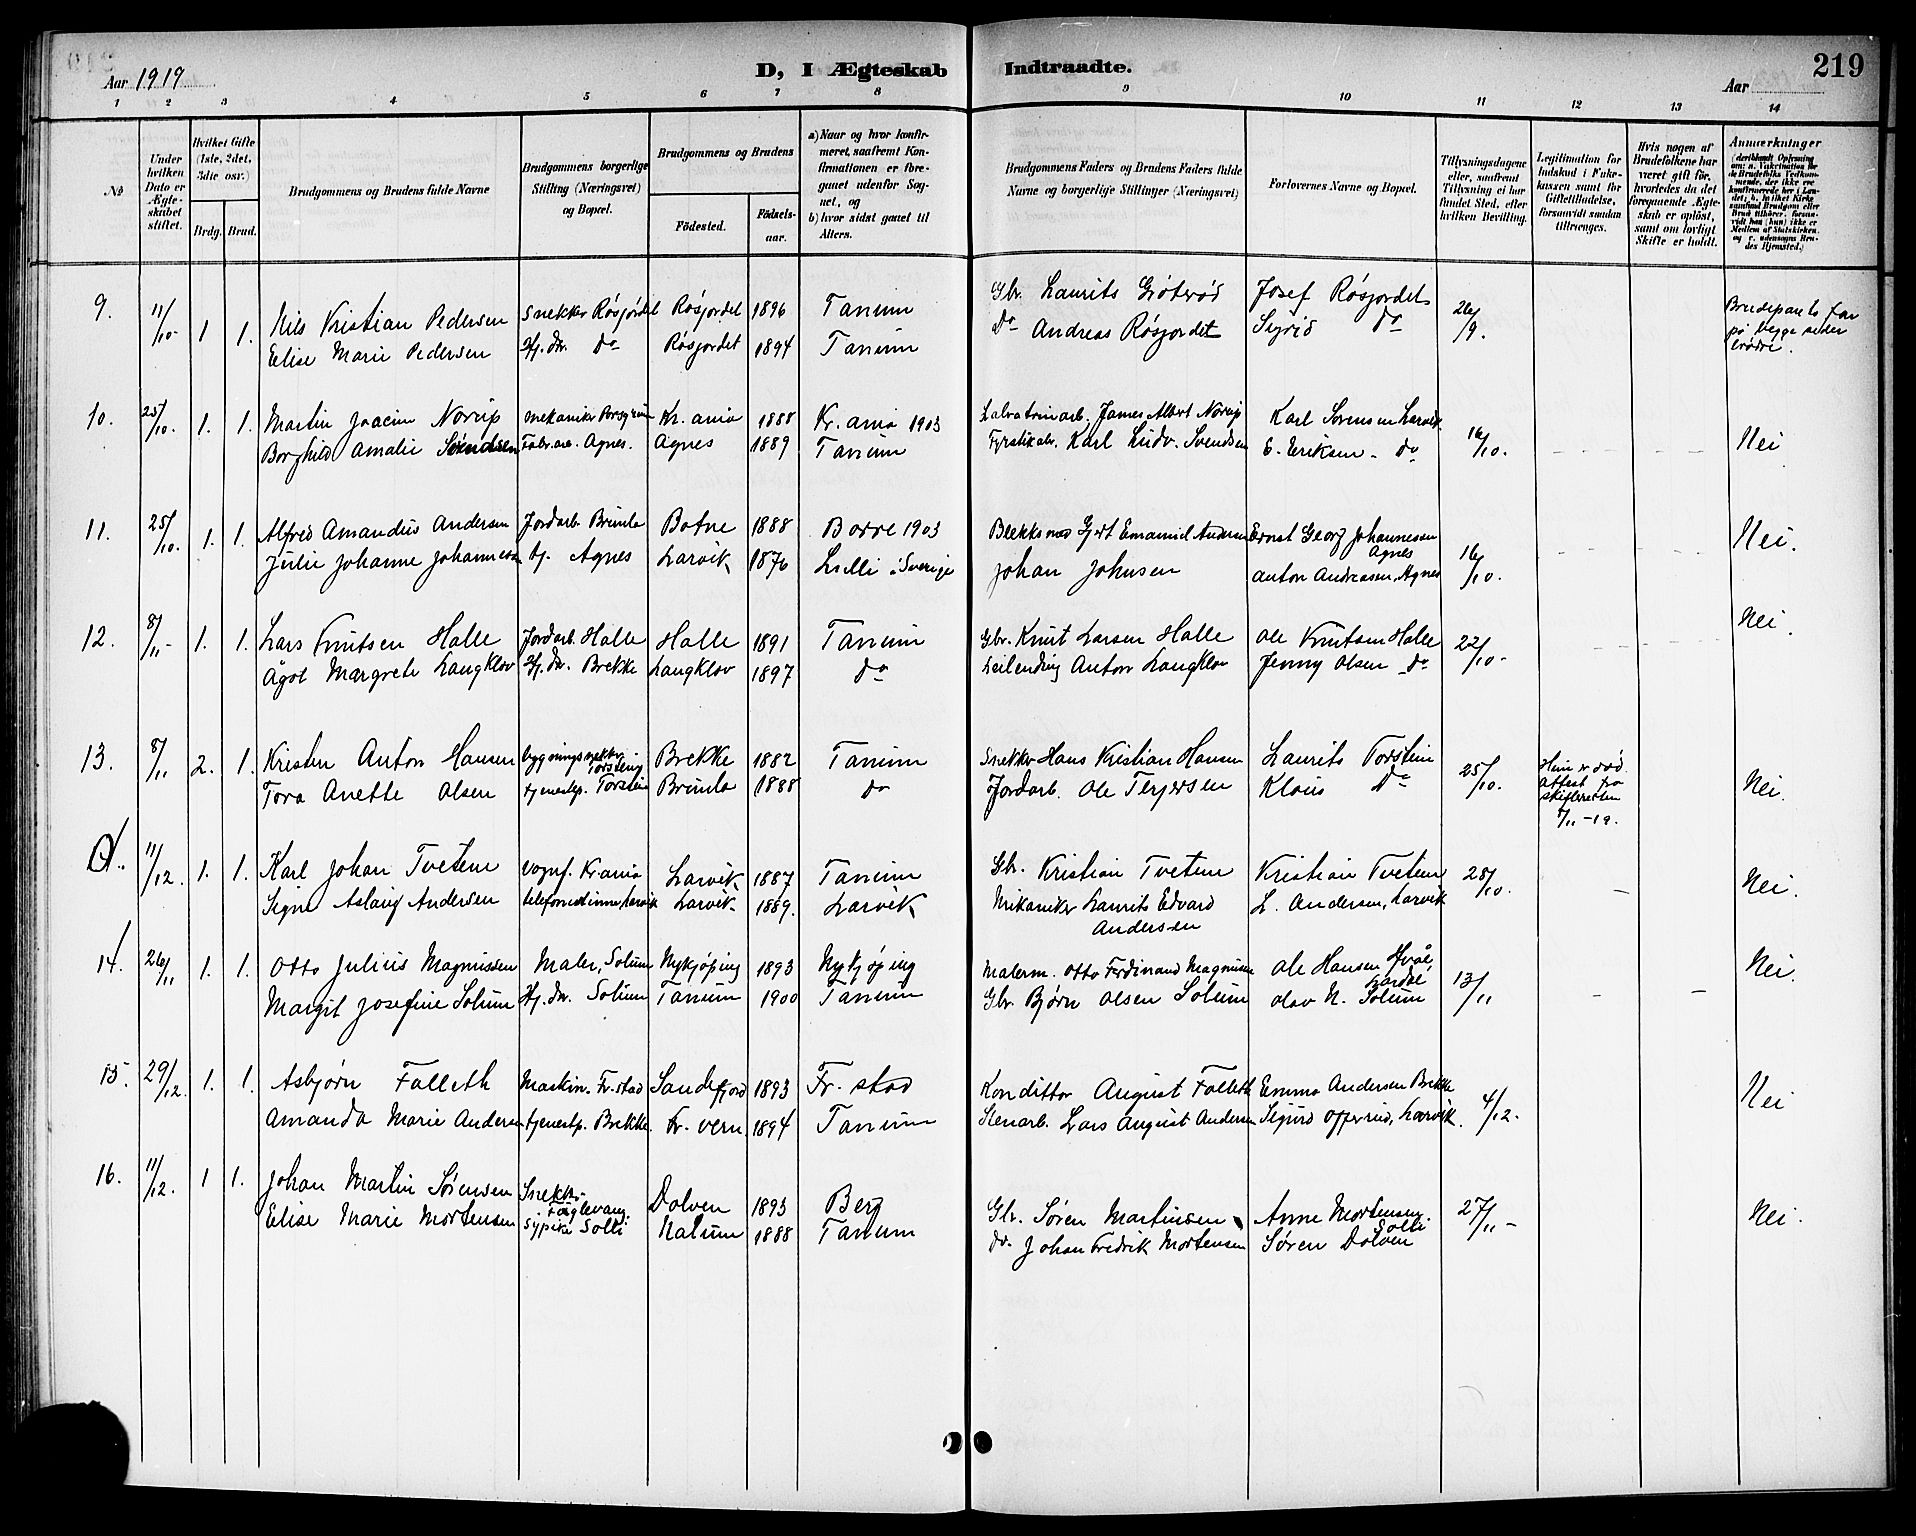 Aar 1919
D, I Ægteskab Indtraadte.
Aar
219
1 2 3 4 5 6 7 8 9 10 11 12 13 14
No
Under hvilken Dato er Ægteskabet stiftet.
Hvilket Gifte (1ste, 2det, 3die osv.)
Brdg. Brud.
Brudgommens og Brudens fulde Navne
Brudgommens borgerlige Stilling (Næringsvei) og Bopæl.
Brudgommens og Brudens
Fødested.
Fødsels-aar.
a) Naar og hvor konfirmeret, saafremt Konfirmationen er foregaaet udenfor Sognet, og
b) hvor sidst gaaet til Alters.
Brudgommens Faders og Brudens Faders fulde Navne og borgerlige Stillinger (Næringsvei)
Forlovernes Navne og Bopæl.
Tillysningsdagene eller, saafremt Tillysning ei har fundet Sted, efter hvilken Bevilling.
Legitimation for Indskud i Enkekassen samt for Giftetilladelse, forsaavidt saadan tiltrænges.
Hvis nogen af Brudefolkene har været gift før, hvorledes da det foregaaende Ægteskab er opløst, samt om lovligt Skifte er holdt.
Anmærkninger
9. 11/10 1 1. Nils Kristian Pedersen Snekker Røsjordet Røsjordet 1896 Tanum Gbr. Laurits Grøtrød Josef Røsjordet 26/9. Brudeparets far
Elise Marie Pedersen Hj. dtr. Do Røsjordet 1894 Tanum Do Andreas Røsjordet Sigrid do på begge sider
brødre.
10. 25/10. 1. 1. Martin Joacim Norup mekaniker Porsgrunn Kr. ania 1888 Kr. ania 1903 James Albert Norup Karl Sørensen Larvik 16/10. Nei
Borghild Amalie Svendsen Fabr. arb. Agnes. Agnes 1889 Tanum Fyrstikarb. Karl Ludv. Svendsen E. Eriksen - do
11. 25/10. 1. 1. Alfred Amandus Andersen Jordarb. Brunla Botne 1888 Borre 1903 Emanuel Andersen Ernst Georg Johannessen Agnes 16/10. Nei.
Julie Johanne Johannessen Agnes Larvik 1870 i Sverige Johan Johnsen Anton Andreasen, Agnes
12. 8/11- 1. 1. Lars Knutsen Halle Jordarb. Halle Halle 1891 Tanum Gbr. Knut Larsen Halle Ole Knutsen Halle 22/10- Nei.
Ågot Margrete Langklov Hj. dtr. Brekke Langklov 1897 do Leilending Anton Langklov Jenny Olsen do
13. 8/11 2. 1. Kristen Anton Hansen bygningssnekker Torstein Brekke 1882 Tanum Snekker Hans Kristian Hansen Laurits Torstein 25/10. Hun er død. Attest fra skifteretten 8/11-19. Nei.
Tora Anette Olsen tjenestep. Torstein Brunla 1888 do Jordarb. Ole Terjersen Klaus Do
11/12. 1. 1. Karl Johan Tveten vognf. Kr.ania Larvik 1887 Tanum Gbr. Kristian Tveten Kristian Tveten 28/10. Nei.
Signe Aslaug Andersen telefonistinne, Larvik Larvik 1889. Larvik Mekaniker Laurits Edvard Andersen L. Andersen, Larvik
14. 26/11 1. 1. Otto Julius Magnussen Maler, Solum Nykjøping 1893 Nykjøping Malerm. Otto Ferdinand Magnusen Ole Hansen 13/11 Nei.
Margit Josefine Solum Hj. dtr. Solum Tanum 1900 Tanum Gbr. Bjørn Olsen Solum Olav N. Solum
15. 29/12. 1. 1. Asbjørn Falleth Maskin. Fr.stad Sandefjord 1893 Fr. stad Konditor August Falleth Emma Andersen Brekke 4/12. Nei
Amanda Marie Andersen tjenestp. Brekke. Fr. vern 1894 Tanum Stenarb. Lars August Andersen Sigurd Opperud, Larvik.
16. 11/12. 1 1. Johan Martin Sørensen Snekker Fuglevang Dolven 1893 Berg Gbr. Sørn Martinsen Anne Mortensen Solli 27/11- Nei.
Elise Marie Mortensen Sypike Solli Nalum 1888 Tanum do. Johan Fredrik Mortensen Søren Dolven